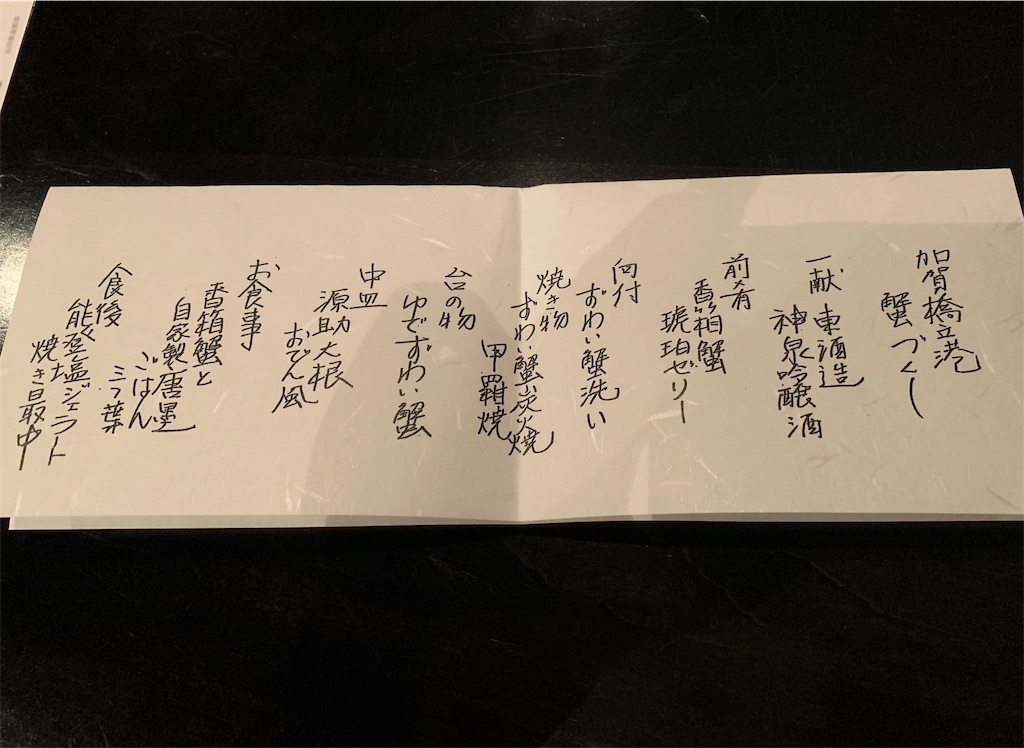 加賀橋立港
蟹づくし
一献 東酒造
神泉吟醸酒
前肴
香箱蟹
琥珀ゼリー
向付
ずわい蟹洗い
焼き物
ずわい蟹炭火焼
甲羅焼
台の物
ゆでずわい蟹
中皿
源助大根
おでん風
お食事
香箱蟹と
自家製唐墨
ごはん
三つ葉
食後
能登塩ジェラート
焼き最中